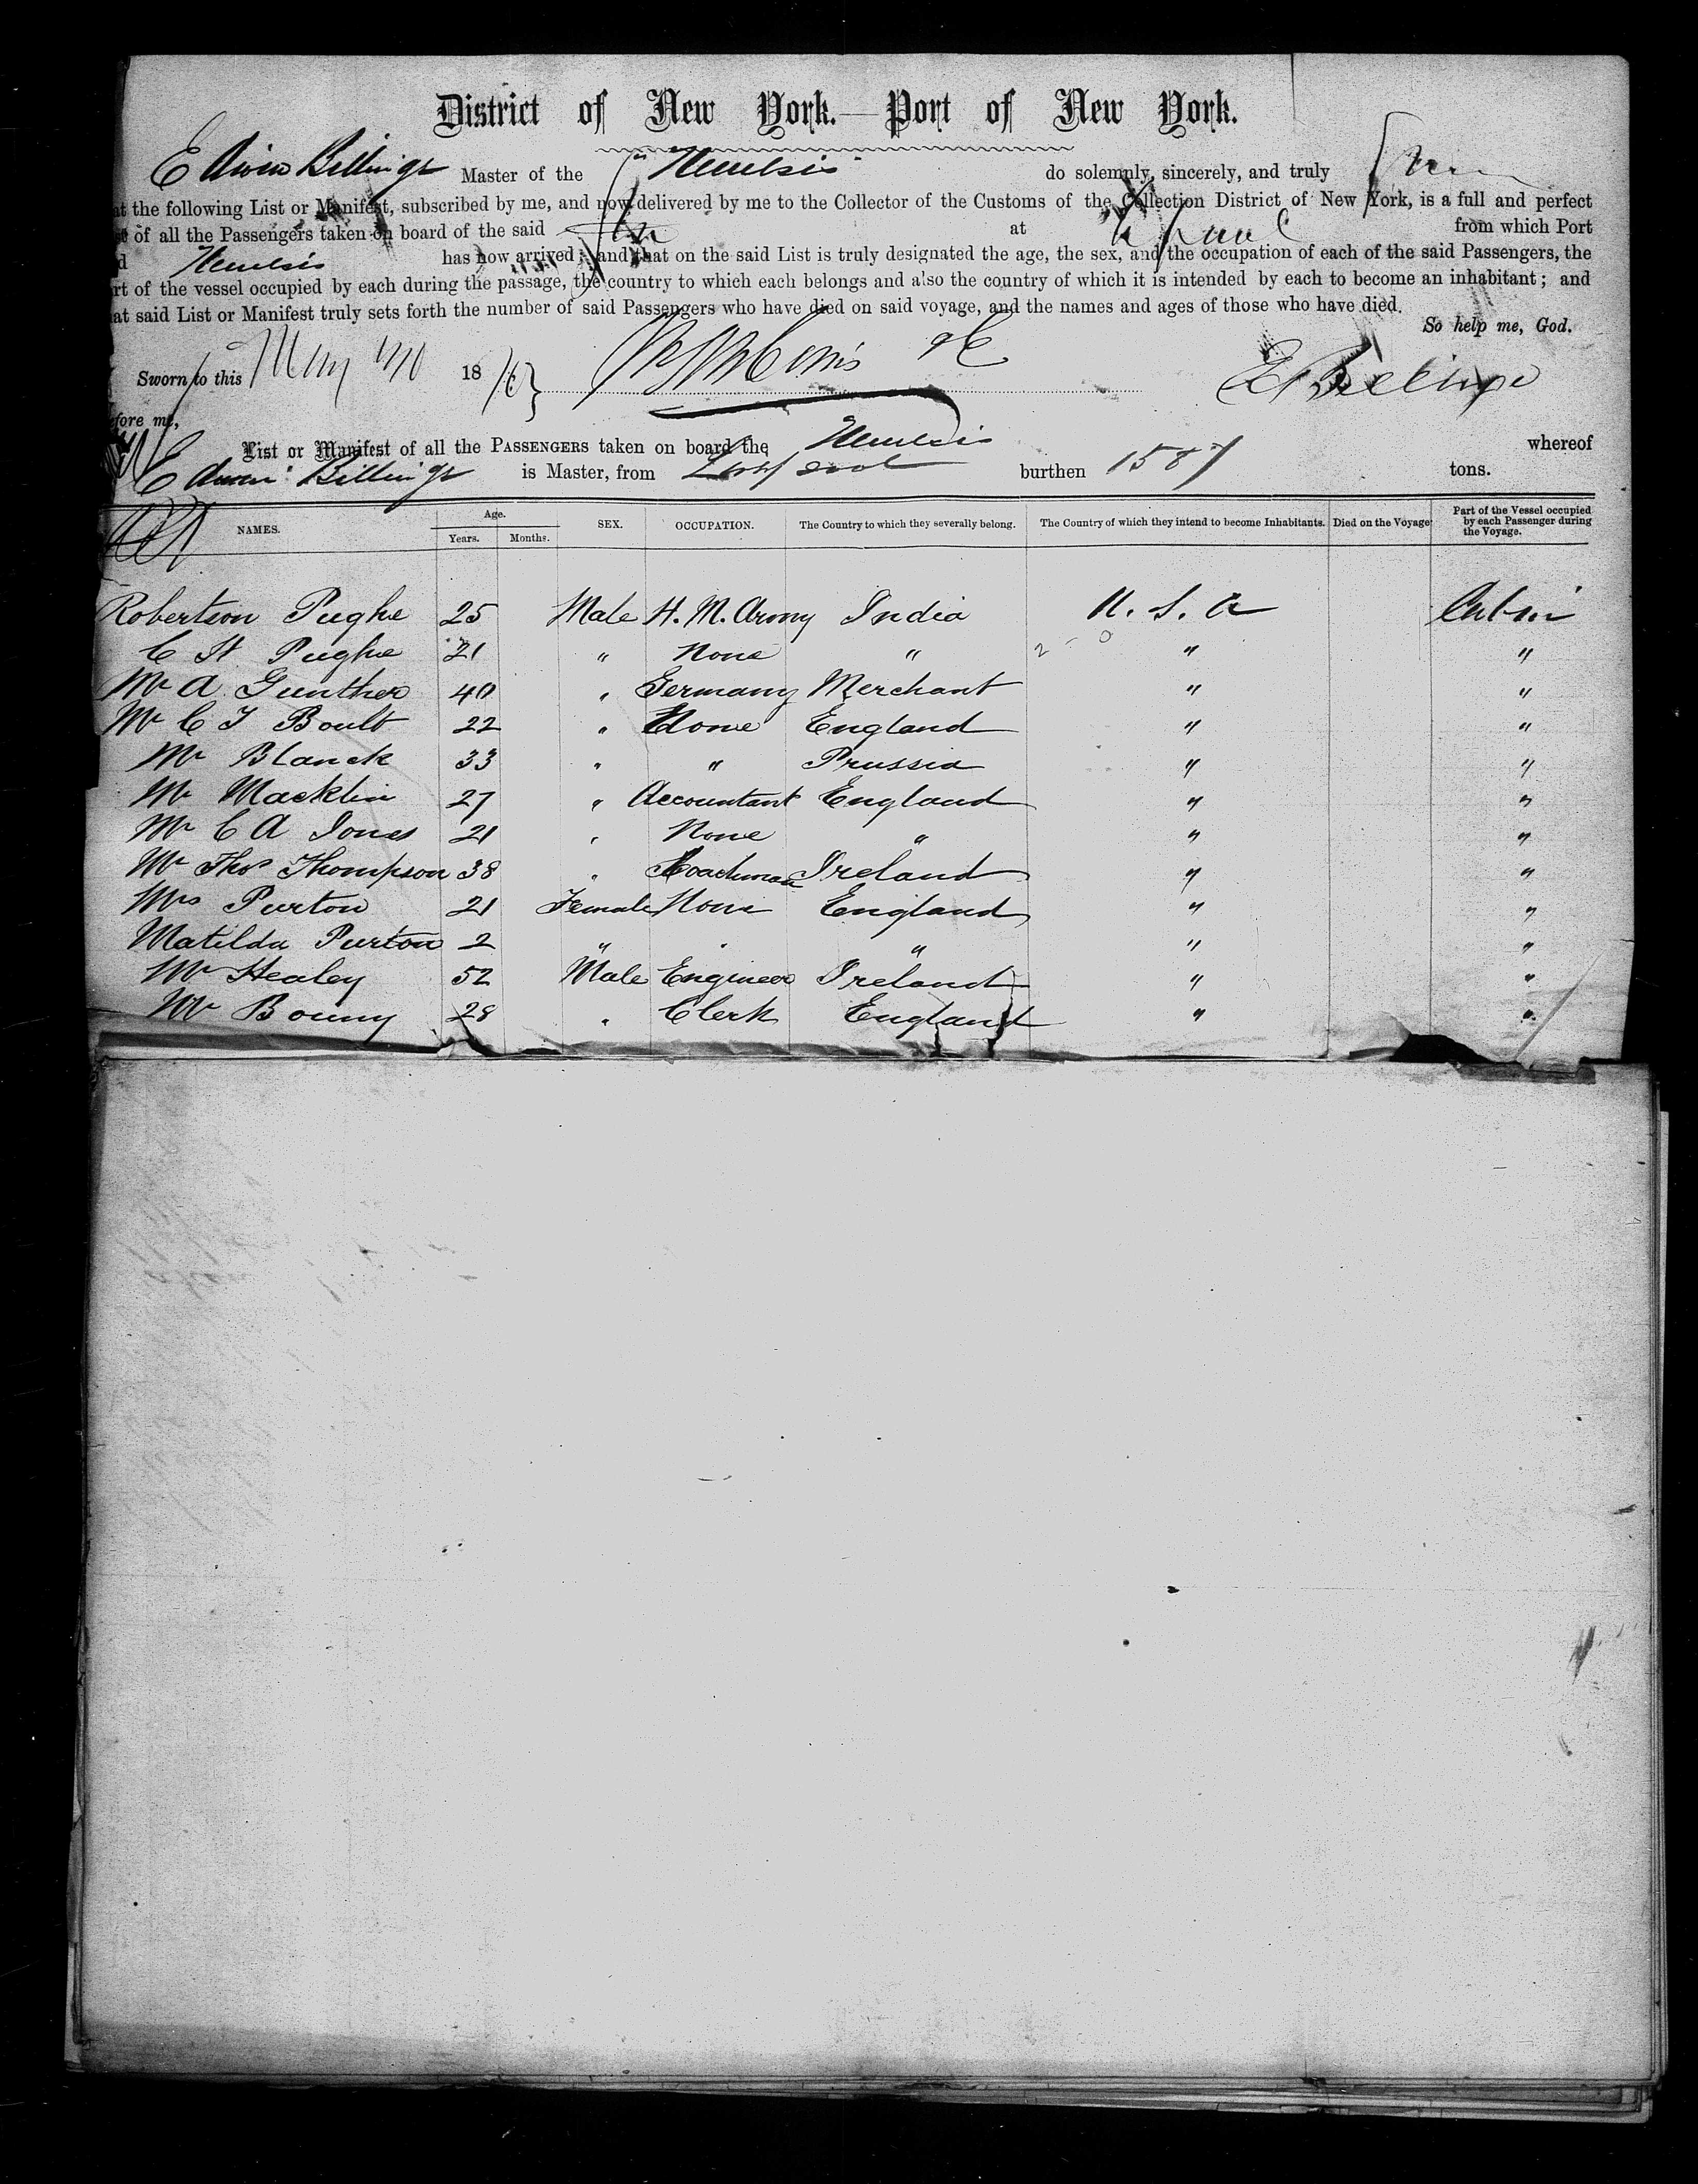 District of New York.—Port of New York.
Edwin Billings Master of the "Nemesis" do solemnly, sincerely, and truly
at the following List or Manifest, subscribed by me, and now delivered by me to the Collector of the Customs of the Collection District of New York, is a full and perfect
of all the Passengers taken on board of the said at from which Port
d Nemesis has now arrived; and that on the said List is truly designated the age, the sex, and the occupation of each of the said Passengers, the
rt of the vessel occupied by each during the passage, the country to which each belongs and also the country of which it is intended by each to become an inhabitant; and
at said List or Manifest truly sets forth the number of said Passengers who have died on said voyage, and the names and ages of those who have died.
So help me, God.
Sworn to this May 18 E Billings
efore me,
List or Manifest of all the PASSENGERS taken on board the Nemesis whereof
Edwin Billings is Master, from Liverpool burthen 1587 tons.
NAMES. Age. Years. Months. SEX. OCCUPATION. The Country to which they severally belong. The Country of which they intend to become Inhabitants. Died on the Voyage Part of the Vessel occupied by each Passenger during the Voyage.
Robertson Pughe 25 Male H. M. Army India U. S. A Cabin
C St Pughe 21 " None " " "
Mr A Gunther 40 " Germany Merchant " "
Mr C J Boult 22 " None England " "
Mr Blanck 33 " " Prussia " "
Mr Macklin 27 " Accountant England " "
Mr C A Jones 21 " None " " "
Mr Thos Thompson 38 " Coachman Ireland " "
Mrs Purton 21 Female None England " "
Matilda Purton 2 " " " " "
Mr Healey 52 Male Engineer Ireland " "
Mr Bouny 28 " Clerk England " "